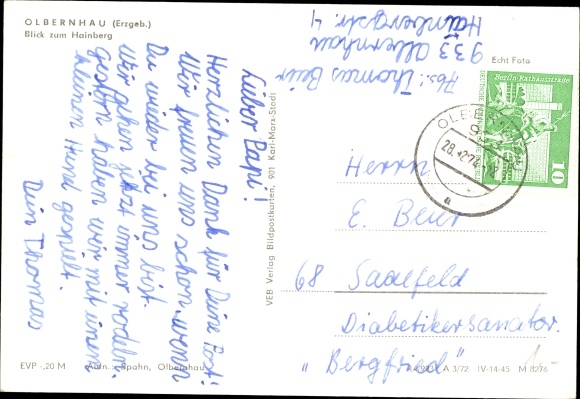 OLBERNHAU (Erzgeb.)
Blick zum Hainberg
Lieber Papi!
Herzlichen Dank für Deine Post!
Wir freuen uns schon, wenn
Du wieder bei uns bist.
Wir gehen jetzt immer rodeln.
Gestern haben wir mit einem
kleinen Hund gespielt.
Dein Thomas
EVP -,20 M
Aufn.: Spahn, Olbernhau
VEB Verlag Bildpostkarten, 901 Karl-Marx-Stadt
Abs.: Thomas Beier
933 Olbernhau
Hainbergstr. 4
Echt Foto
Berlin-Rathausstraße
10
28.-2.74
a
Herrn
E. Beier
68 Saalfeld
Diabetikersanator.
"Bergfried"
A 3/72 IV-14-45 M 8276